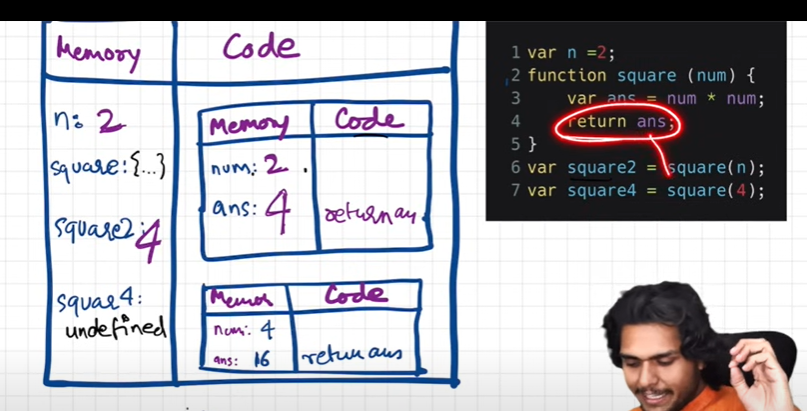 Memory Code
n: 2
square: {...}
square2: 4
squar4:
undefined
Memory Code
num: 2
ans: 4 return an
Memor Code
num: 4
ans: 16 return ans
1 var n =2;
2 function square (num) {
3 var ans = num * num;
4 return ans;
5 }
6 var square2 = square(n);
7 var square4 = square(4);